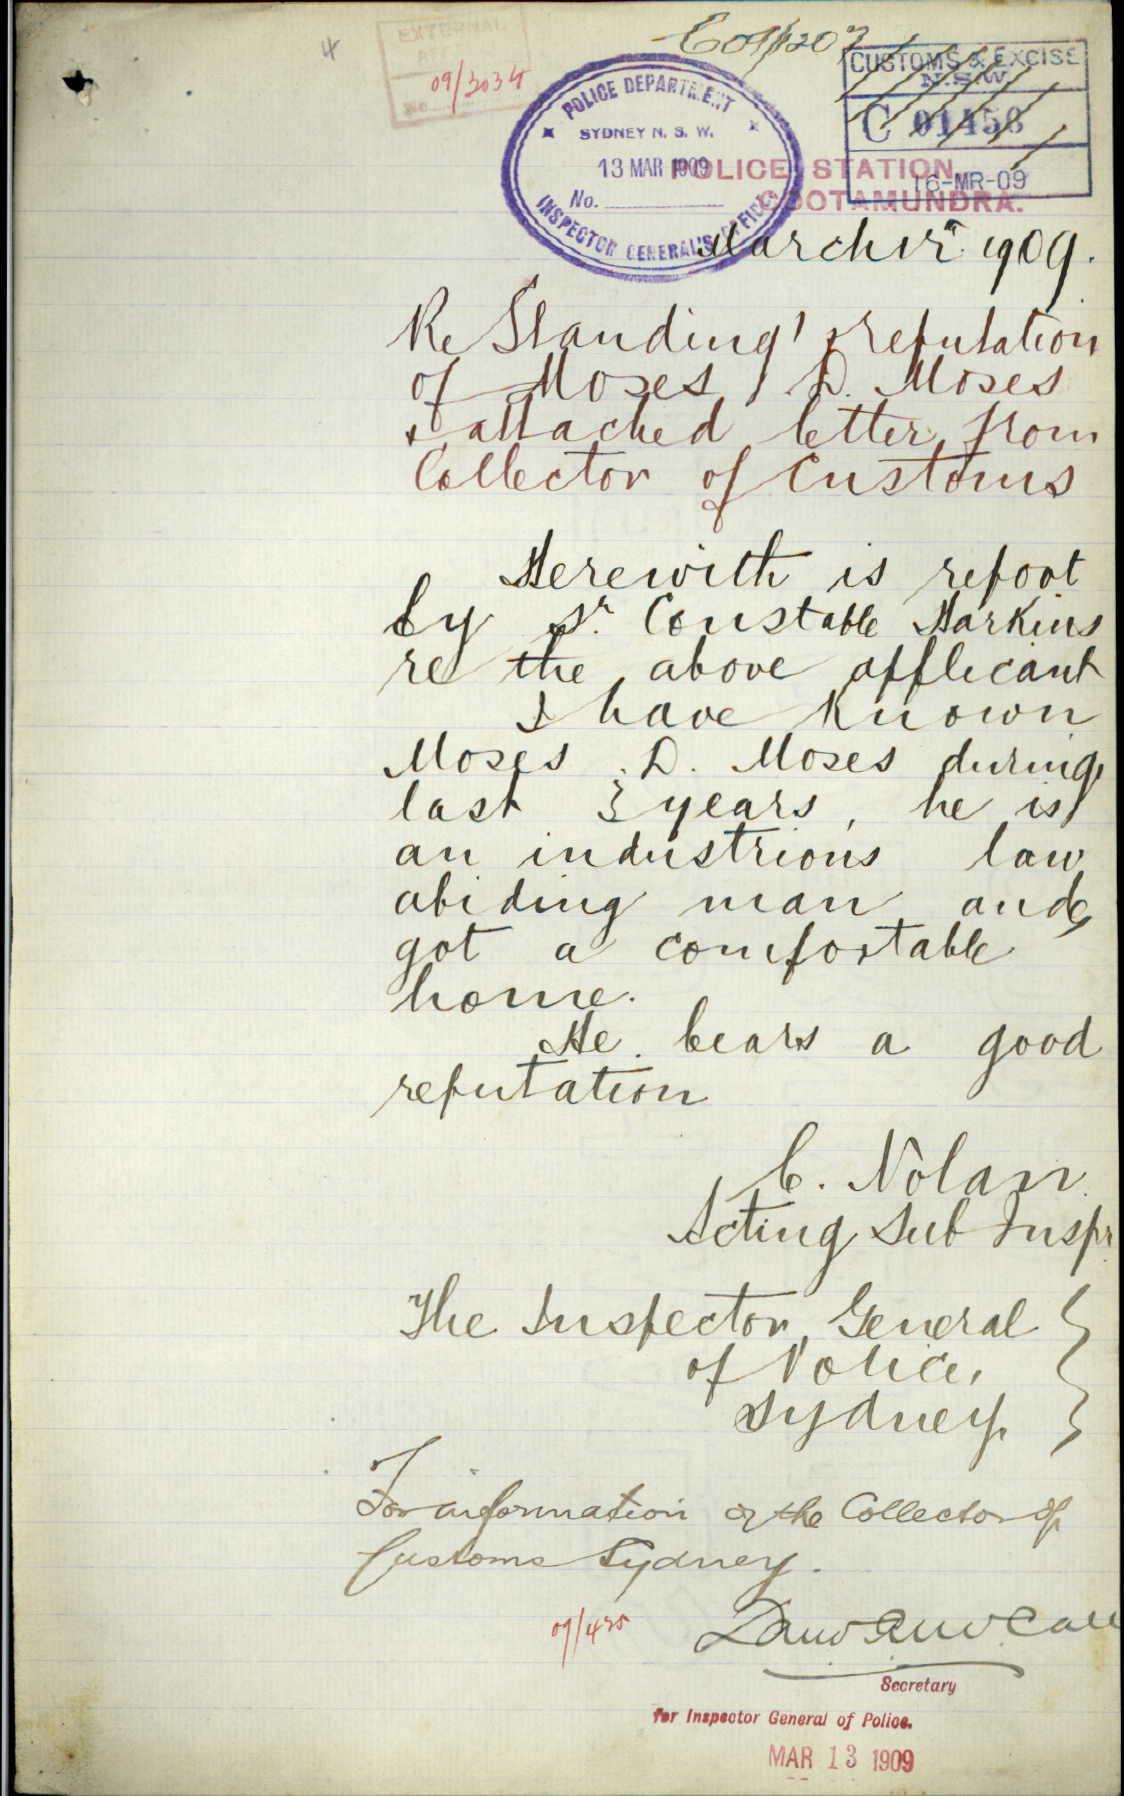 4
EXTERNAL
No.
09/3034
POLICE DEPARTMENT
SYDNEY N. S. W.
13 MAR 1909
No.
INSPECTOR GENERAL'S OFFICE
CUSTOMS & EXCISE
N.S.W.
C 01456
16-MR-09
POLICE STATION
COOTAMUNDRA.
March 1909.
Re Standing & reputation
of Moses D. Moses
& attached letter from
Collector of Customs
Herewith is report
by Sr. Constable Harkins
re the above applicant
I have known
Moses D. Moses during
last 3 years, he is
an industrious law
abiding man and
got a comfortable
home.
He bears a good
reputation
C. Nolan
Acting Sub Inspr
The Inspector General
of Police,
Sydney.
For information of the Collector of
Customs Sydney.
09/425
Secretary
for Inspector General of Police.
MAR 13 1909